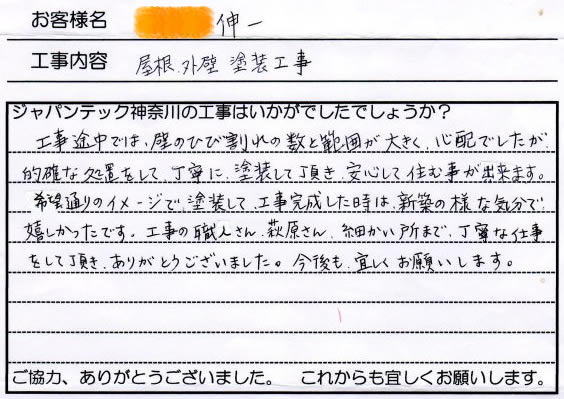 お客様名 伸一
工事内容 屋根、外壁 塗装工事
ジャパンテック神奈川の工事はいかがでしたでしょうか？
工事途中では、壁のひび割れの数と範囲が大きく、心配でしたが、
的確な処置をして、丁寧に、塗装して頂き、安心して住む事が出来ます。
希望通りのイメージで、塗装して、工事完成した時は、新築の様な気分で
嬉しかったです。工事の職人さん、萩原さん、細かい所まで、丁寧な仕事
をして頂き、ありがとうございました。今後も、宜しくお願いします。
ご協力、ありがとうございました。 これからも宜しくお願いします。